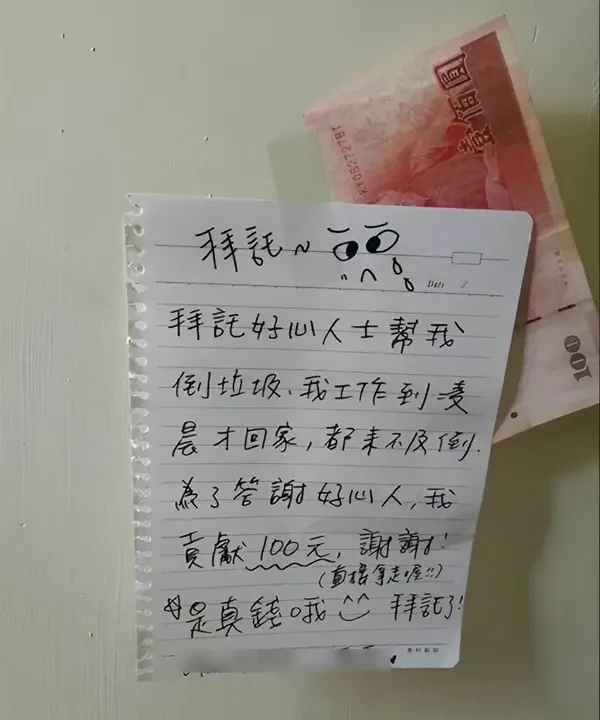 壹佰圓
KY082727BT
100
拜託~
Date /
拜託好心人士幫我
倒垃圾、我工作到凌
晨才回家,都來不及倒.
為了答謝好心人,我
貢獻100元,謝謝!
(直接拿走喔!!)
是真錢哦 拜託了!